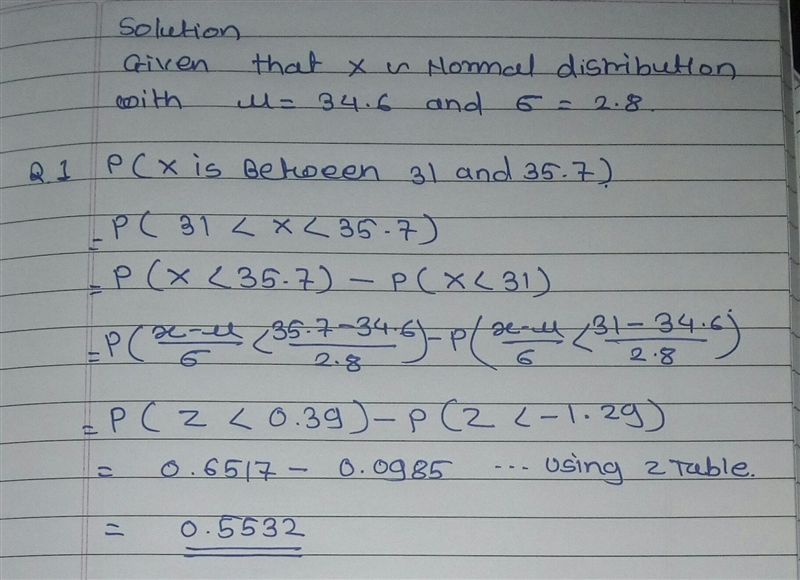 Solution
Given that x ~ Normal distribution
with μ = 34.6 and σ = 2.8.
Q.1 P(x is Between 31 and 35.7)
= P( 31 < x < 35.7)
= P(x < 35.7) - P(x < 31)
= P((x-μ)/σ < (35.7-34.6)/2.8) - P((x-μ)/σ < (31-34.6)/2.8)
= P( Z < 0.39) - P(Z < -1.29)
= 0.6517 - 0.0985 ... using z Table.
= 0.5532